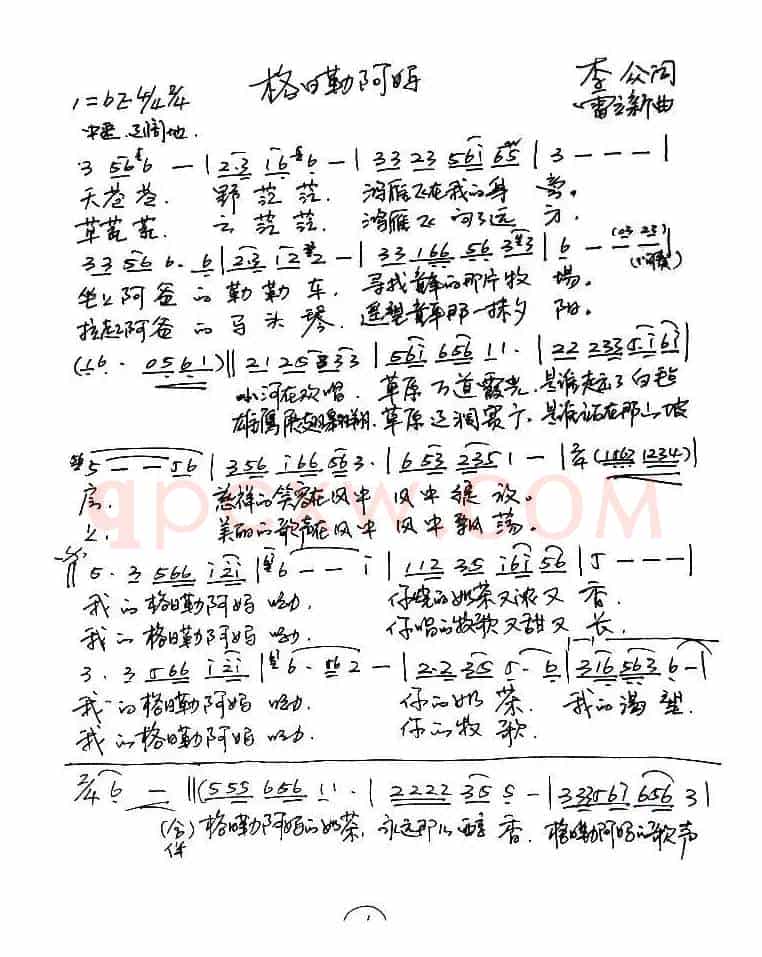 格日勒阿妈
李众词
雷立新曲
1=bE 4/4 2/4
中速 辽阔地.
3 56 6 — | 2·3 16 6 — | 33 23 561 65 | 3 — — — |
天苍苍. 野茫茫. 鸿雁飞在我的身旁.
草荒荒. 云茫茫. 鸿雁飞向了远方.
33 56 6. 6 | 2·3 12 2 — | 33 166 56 3 3 | 6 — — (03 23) |
坐上阿爸的勒勒车. 寻找着那片牧場.
拉起阿爸的马头琴. 遥望着那一抹夕阳.
(16 · 0561) || 21 25 3 33 | 561 656 11· | 22 233 5161 |
小河在欢唱. 草原万道霞光. 是谁走了白毡
雄鹰展翅翱翔. 草原辽阔宽广. 是谁站在那山坡
5 — — 56 | 356 166 563· | 653 2351 — | 2/4 (1562 1234) |
房. 慈祥的笑容在风中 风中绽放.
上. 美丽的歌声在风中 风中飘荡.
5·3 566 121 | 6 — — 1 | 112 35 161 56 | 5 — — — |
我的格日勒阿妈呦. 你烧的奶茶又浓又香.
我的格日勒阿妈呦. 你唱的牧歌又甜又长.
3·3 566 121 | 6· 56 2 — | 2·2 35 5· 6 | 316 563 6 — |
我的格日勒阿妈呦. 你的奶茶. 我的渴望.
我的格日勒阿妈呦. 你的牧歌.
2/4 6 — || (555 656 11· | 2222 35 5 — | 33567 656 3 |
(合伴) 格日勒阿妈的奶茶, 永远那么醇香. 格日勒阿妈的歌声
1
qpcxw.COM